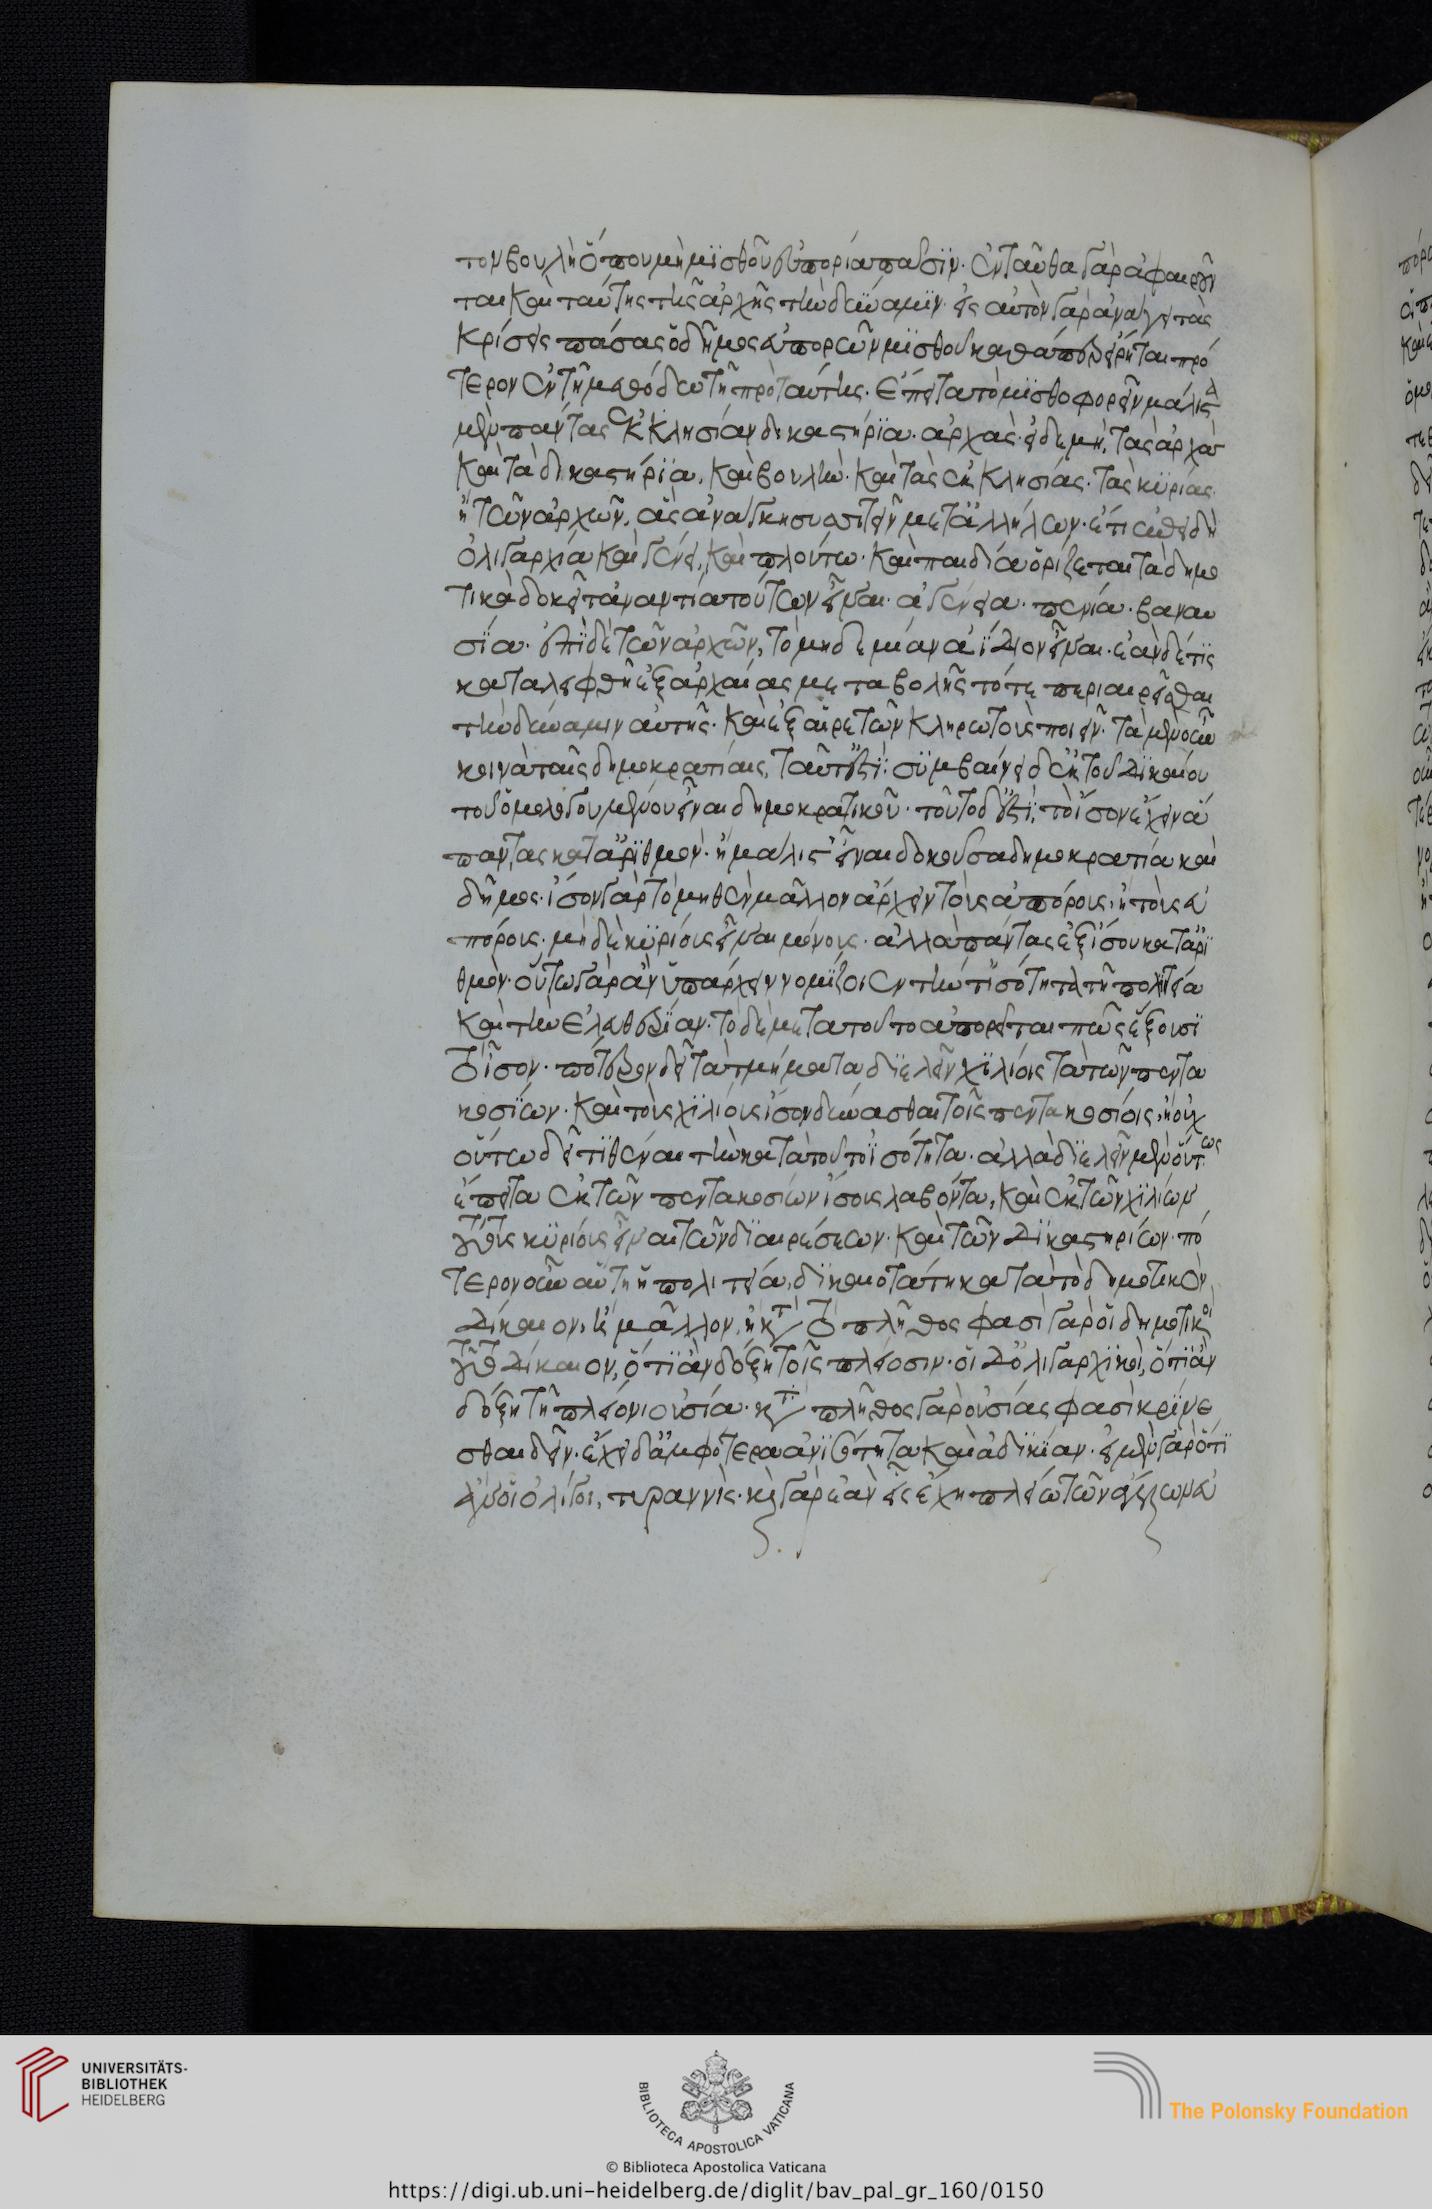 τον βουλὴ ὅπου μὴ μϊσθοῦ εὐπορία πᾶσϊν. ἐνταῦθα γὰρ ἀφαιροῦν
ται καὶ ταύτης τῆς ἀρχῆς τὴν δύναμϊν. εἰς αὑτὸν γὰρ ἀνάγει τὰς
κρίσεις πάσας ὁ δῆμος εὐπορῶν μϊσθοῦ καθάπερ εἴρηται πρό
τερον ἐν τῇ μεθόδω τῇ πρὸ ταύτης. ἔπειτα τὸ μϊσθοφορεῖν μάλιστα
μὲν πάντας ἐκκλησίαν δικαστήρϊα. ἀρχάς. εἰ δὲ μή, τὰς ἀρχὰς
καὶ τὰ δικαστήρϊα, καὶ βουλὴν. καὶ τὰς ἐκκλησίας. τὰς κϋρίας.
ἢ τῶν ἀρχῶν, ἃς ἀνάγκη συσσιτεῖν μετ' ἀλλήλων. ἔτι ἐπειδὴ
ὀλιγαρχία καὶ γένει, καὶ πλούτω. καὶ παιδία ὁρίζεται τὰ δημο
τικὰ δοκεῖ τἀναντία τούτων εἶναι. ἀγένεια. πενία. βαναυ
σία. ἐπὶ δὲ τῶν ἀρχῶν, τὸ μηδεμίαν ἀΐδιον εἶναι. ἐὰν δέ τις
καταλειφθῆ ἐξ ἀρχαίας μεταβολῆς τότε περιαιρεῖσθαι
τὴν δύναμιν αὐτῆς. καὶ ἐξ αἱρετῶν κληρωτοὺς ποιεῖν. τὰ μὲν οὖν
κοινὰ ταῖς δημοκρατίαις, ταῦτ' ἐστί: συμβαίνει δ' ἐκ τοῦ δικαίου
τοῦ ὁμολογουμένου εἶναι δημοκρατικοῦ. τοῦτο δ' ἐστί, τὸ ἴσον ἔχειν ἅ
παντας κατ' ἀρϊθμόν. ἡ μάλιστ' εἶναι δοκοῦσα δημοκρατία καὶ
δῆμος. ἴσον γὰρ τὸ μηθὲν μᾶλλον ἄρχειν τοὺς ἀπόρους, ἢ τοὺς εὐ
πόρους. μὴ δὲ κϋρίους εἶναι μόνους. ἀλλὰ πάντας ἐξίσου κατ' ἀρϊ
θμόν. οὕτω γὰρ ἂν ὑπάρχειν νομίζοιεν τήν τ' ἰσότητα τῆ πολϊτεία
καὶ τὴν ἐλευθερίαν. τὸ δὲ μετὰ τοῦτο ἀπορεῖται πῶς ἕξουσϊ
τὸ ἶσον. πότερον δεῖ τὰ τμήματα δϊελεῖν χϊλίοις τὰ τῶν πεντα
κοσίων. καὶ τοὺς χϊλίους ἴσον δύνασθαι τοῖς πεντακοσίοις, ἢ οὐχ
οὕτω δεῖ τιθέναι τὴν κατὰ τοῦτο ἰσότητα. ἀλλὰ δϊελεῖν μὲν οὕτως
ἔπειτα ἐκ τῶν πεντακοσίων ἴσους λαβόντα, καὶ ἐκ τῶν χϊλίων
τούτους κϋρίους εἶναι τῶν δϊαιρέσεων. καὶ τῶν δϊκαστηρίων. πό
τερον οὖν αὕτη ἡ πολιτεία, δϊκαιοτάτη κατὰ τὸ δημοτικὸν
δίκαιον, ἢ μᾶλλον, ἡ κατὰ τὸ πλῆθος φασὶ γὰρ οἱ δημοτικοὶ
τοῦτο δίκαιον, ὅτι ἂν δόξη τοῖς πλείοσιν. οἱ δ' ὀλιγαρχϊκοί, ὅτι ἂν
δόξη τῆ πλείονι οὐσία. κατὰ πλῆθος γὰρ οὐσίας φασὶ κρίνε
σθαι δεῖν. ἔχει δ' ἀμφότερα ἀνϊσότητα καὶ ἀδϊκϊαν. εἰ μὲν γὰρ ὅτϊ
ἂν οἱ ὀλίγοι, τυραννίς. καὶ γὰρ ἐὰν εἷς ἔχη πλείω τῶν ἄλλων εὐ
UNIVERSITÄTS-
BIBLIOTHEK
HEIDELBERG
BIBLIOTECA APOSTOLICA VATICANA
The Polonsky Foundation
© Biblioteca Apostolica Vaticana
https://digi.ub.uni-heidelberg.de/diglit/bav_pal_gr_160/0150